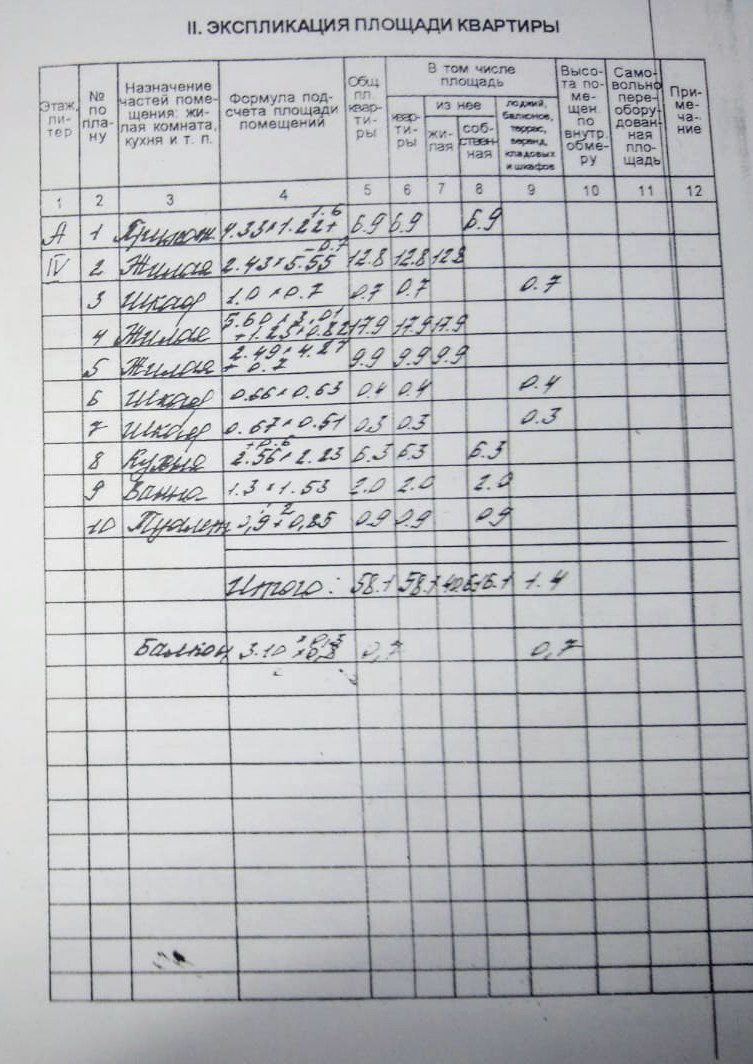 II. ЭКСПЛИКАЦИЯ ПЛОЩАДИ КВАРТИРЫ
Этаж, ли- тер
№ по пла- ну
Назначение частей поме- щения: жи- лая комната, кухня и т. п.
Формула под- счета площади помещений
Общ. пл. квар- ти- ры
В том числе площадь
квар- ти- ры
из нее
жи- лая
соб- ствен- ная
лоджий, балконов, террас, веранд, кладовых и шкафов
Высо- та по- ме- щен. по внутр. обме- ру
Само- вольно пере- обору- дован- ная пло- щадь
При- ме- ча- ние
1 2 3 4 5 6 7 8 9 10 11 12
А 1 Прихож 4.33×1.22+1.6 6.9 6.9 6.9
IV 2 Жилая 2.43×5.55-0.7 12.8 12.8 12.8
3 Шкаф 1.0×0.7 0.7 0.7 0.7
4 Жилая 5.60×3.01+1.25×0.82 17.9 17.9 17.9
5 Жилая 2.49×4.27+0.7 9.9 9.9 9.9
6 Шкаф 0.66×0.63 0.4 0.4 0.4
7 Шкаф 0.67×0.51 0.3 0.3 0.3
8 Кухня 2.56×2.23+0.6 6.3 6.3 6.3
9 Ванна 1.3×1.53 2.0 2.0 2.0
10 Туалет 0,85 0.9 0.9 0.9
Итого: 58.1 58.1 40.6 16.1 1.4
Балкон 3.10 × 0,7 0,7